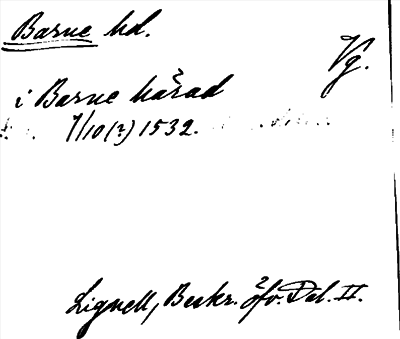 Barne hd.
Vg.
i Barne härad
7/10 (?) 1532.
Lignell, Beskr. öfv. Dal. II.